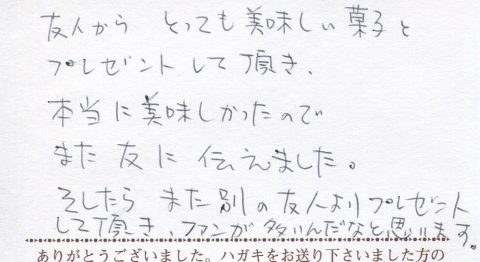 友人から とっても美味しい菓子と
プレゼントして頂き、
本当に美味しかったので
また友に伝えました。
そしたら また別の友人よりプレゼント
して頂き、ファンが多いんだなと思います。
ありがとうございました。ハガキをお送り下さいました方の